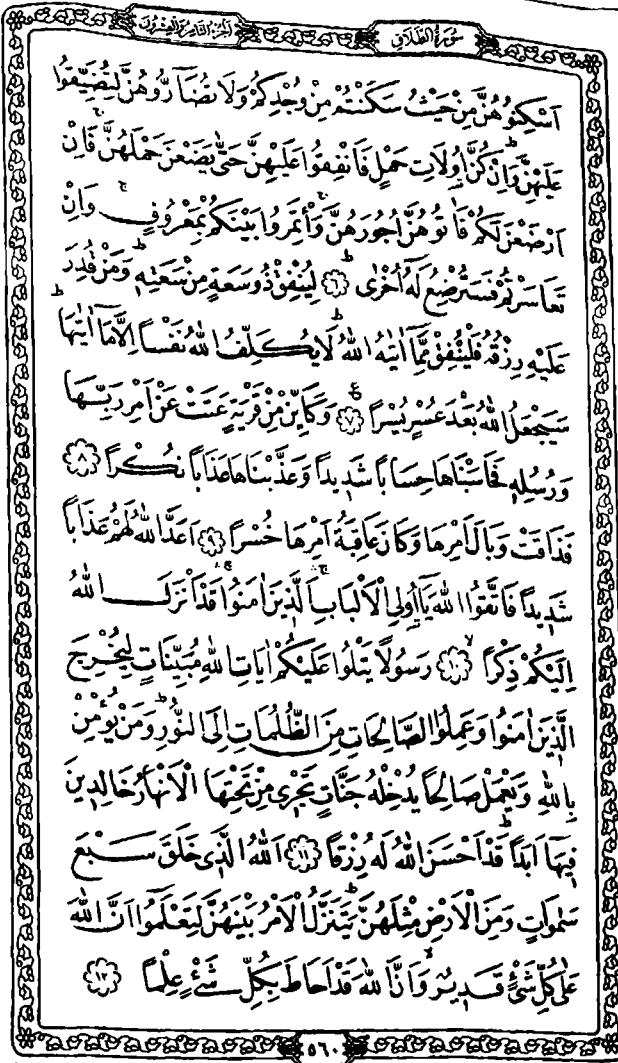 سُورَةُ الطَّلَاقِ
اَلْجُزْءُ الثَّامِنُ وَالْعِشْرُونَ
اَسْكِنُوهُنَّ مِنْ حَيْثُ سَكَنْتُمْ مِنْ وُجْدِكُمْ وَلَا تُضَٓارُّوهُنَّ لِتُضَيِّقُوا
عَلَيْهِنَّۜ وَاِنْ كُنَّ اُولَاتِ حَمْلٍ فَاَنْفِقُوا عَلَيْهِنَّ حَتّٰى يَضَعْنَ حَمْلَهُنَّۚ فَاِنْ
اَرْضَعْنَ لَكُمْ فَاٰتُوهُنَّ اُجُورَهُنَّۚ وَأْتَمِرُوا بَيْنَكُمْ بِمَعْرُوفٍۚ وَاِنْ
تَعَاسَرْتُمْ فَسَتُرْضِعُ لَهُٓ اُخْرٰىۜ ﴿٦﴾ لِيُنْفِقْ ذُو سَعَةٍ مِنْ سَعَتِهٖۜ وَمَنْ قُدِرَ
عَلَيْهِ رِزْقُهُ فَلْيُنْفِقْ مِمَّٓا اٰتٰيهُ اللّٰهُۜ لَا يُكَلِّفُ اللّٰهُ نَفْسًا اِلَّا مَٓا اٰتٰيهَاۜ
سَيَجْعَلُ اللّٰهُ بَعْدَ عُسْرٍ يُسْرًا ﴿٧﴾ وَكَاَيِّنْ مِنْ قَرْيَةٍ عَتَتْ عَنْ اَمْرِ رَبِّهَا
وَرُسُلِهٖ فَحَاسَبْنَاهَا حِسَابًا شَدٖيدًا وَعَذَّبْنَاهَا عَذَابًا نُكْرًا ﴿٨﴾
فَذَاقَتْ وَبَالَ اَمْرِهَا وَكَانَ عَاقِبَةُ اَمْرِهَا خُسْرًا ﴿٩﴾ اَعَدَّ اللّٰهُ لَهُمْ عَذَابًا
شَدٖيدًا فَاتَّقُوا اللّٰهَ يَٓا اُولِي الْاَلْبَابِۚ اَلَّذٖينَ اٰمَنُواۚ قَدْ اَنْزَلَ اللّٰهُ
اِلَيْكُمْ ذِكْرًاۙ ﴿١٠﴾ رَسُولًا يَتْلُوا عَلَيْكُمْ اٰيَاتِ اللّٰهِ مُبَيِّنَاتٍ لِيُخْرِجَ
الَّذٖينَ اٰمَنُوا وَعَمِلُوا الصَّالِحَاتِ مِنَ الظُّلُمَاتِ اِلَى النُّورِۜ وَمَنْ يُؤْمِنْ
بِاللّٰهِ وَيَعْمَلْ صَالِحًا يُدْخِلْهُ جَنَّاتٍ تَجْرٖي مِنْ تَحْتِهَا الْاَنْهَارُ خَالِدٖينَ
فٖيهَٓا اَبَدًاۜ قَدْ اَحْسَنَ اللّٰهُ لَهُ رِزْقًا ﴿١١﴾ اَللّٰهُ الَّذٖي خَلَقَ سَبْعَ
سَمٰوَاتٍ وَمِنَ الْاَرْضِ مِثْلَهُنَّۜ يَتَنَزَّلُ الْاَمْرُ بَيْنَهُنَّ لِتَعْلَمُٓوا اَنَّ اللّٰهَ
عَلٰى كُلِّ شَيْءٍ قَدٖيرٌۙ وَاَنَّ اللّٰهَ قَدْ اَحَاطَ بِكُلِّ شَيْءٍ عِلْمًا ﴿١٢﴾
٥٦٠